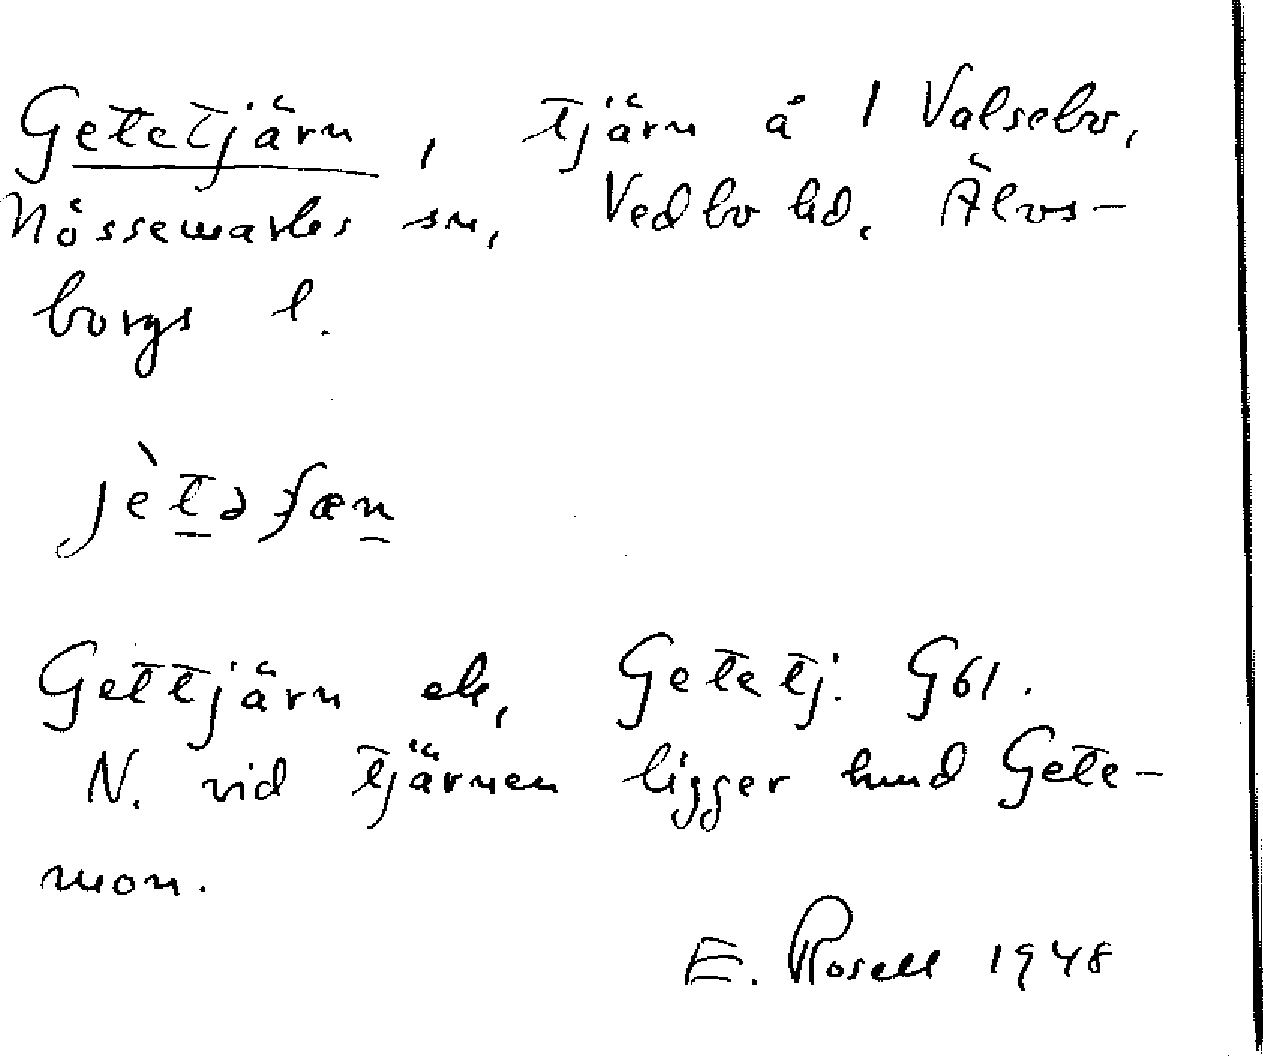 Getetjärn, tjärn å 1 Valsebo,
Nössemarks sn, Vedbo hd, Älvs-
borgs l.
jètəʃæn
Gettjärn ek, Getetj. G61.
N. vid tjärnen ligger hmd Gete-
mon.
E. Rosell 1948